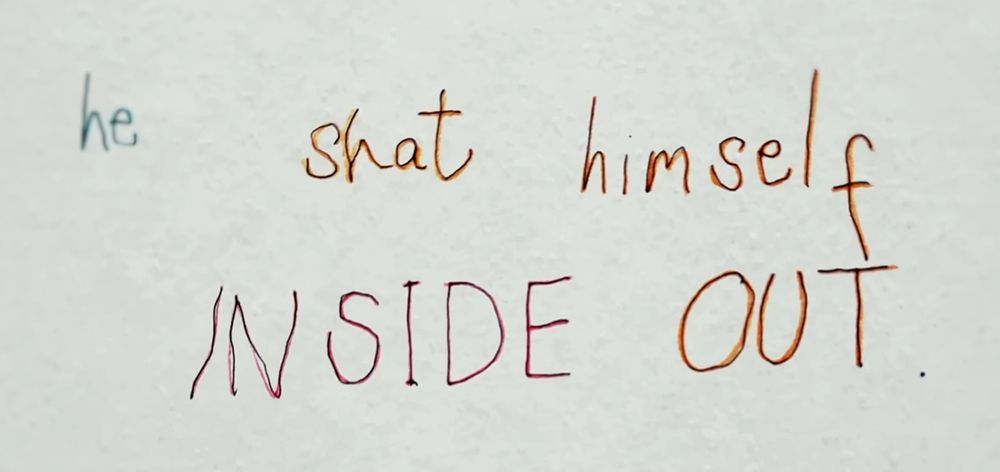 he shat himself
INSIDE OUT.